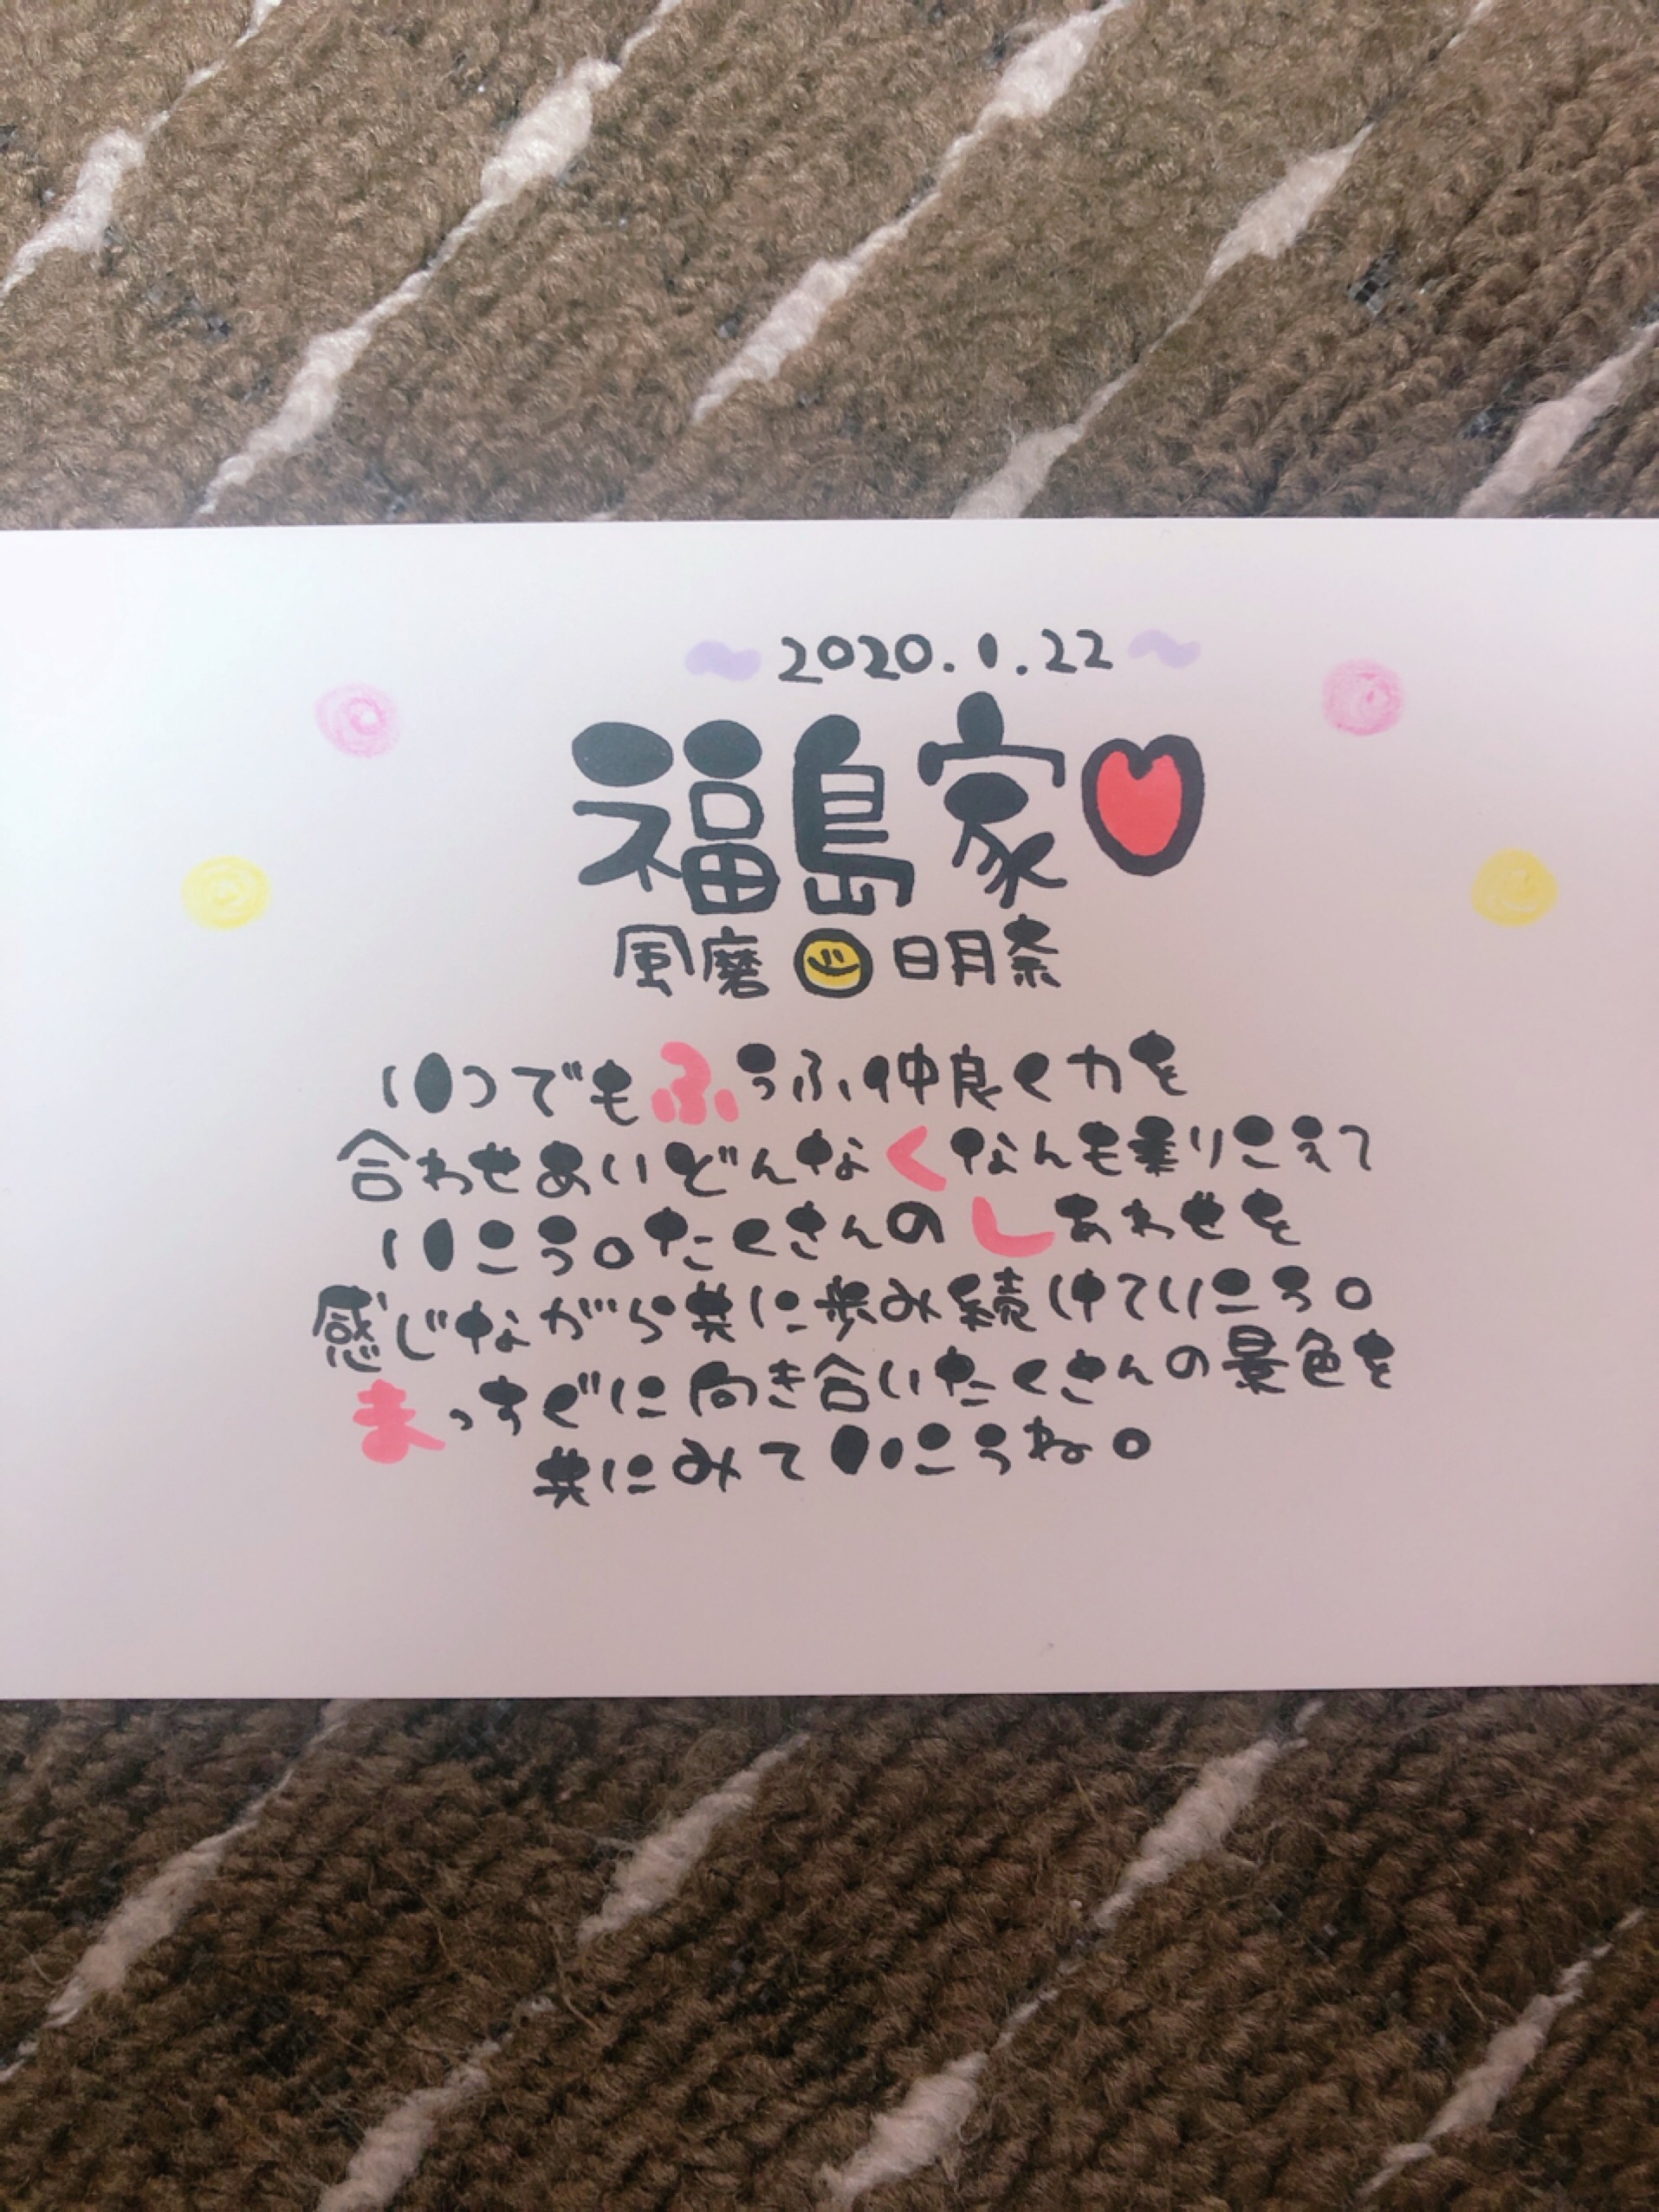 ~2020.1.22~
福島家
風磨 日月奈
いつでもふうふ仲良く力を
合わせあいどんなくなんも乗りこえて
いこう。たくさんのしあわせを
感じながら共に歩み続けていこう。
まっすぐに向き合いたくさんの景色を
共にみていこうね。